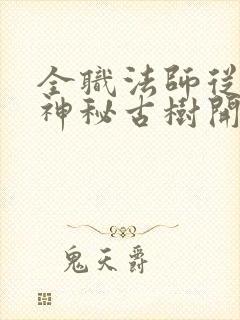 全職法師從
神秘古樹開
鬼天爵